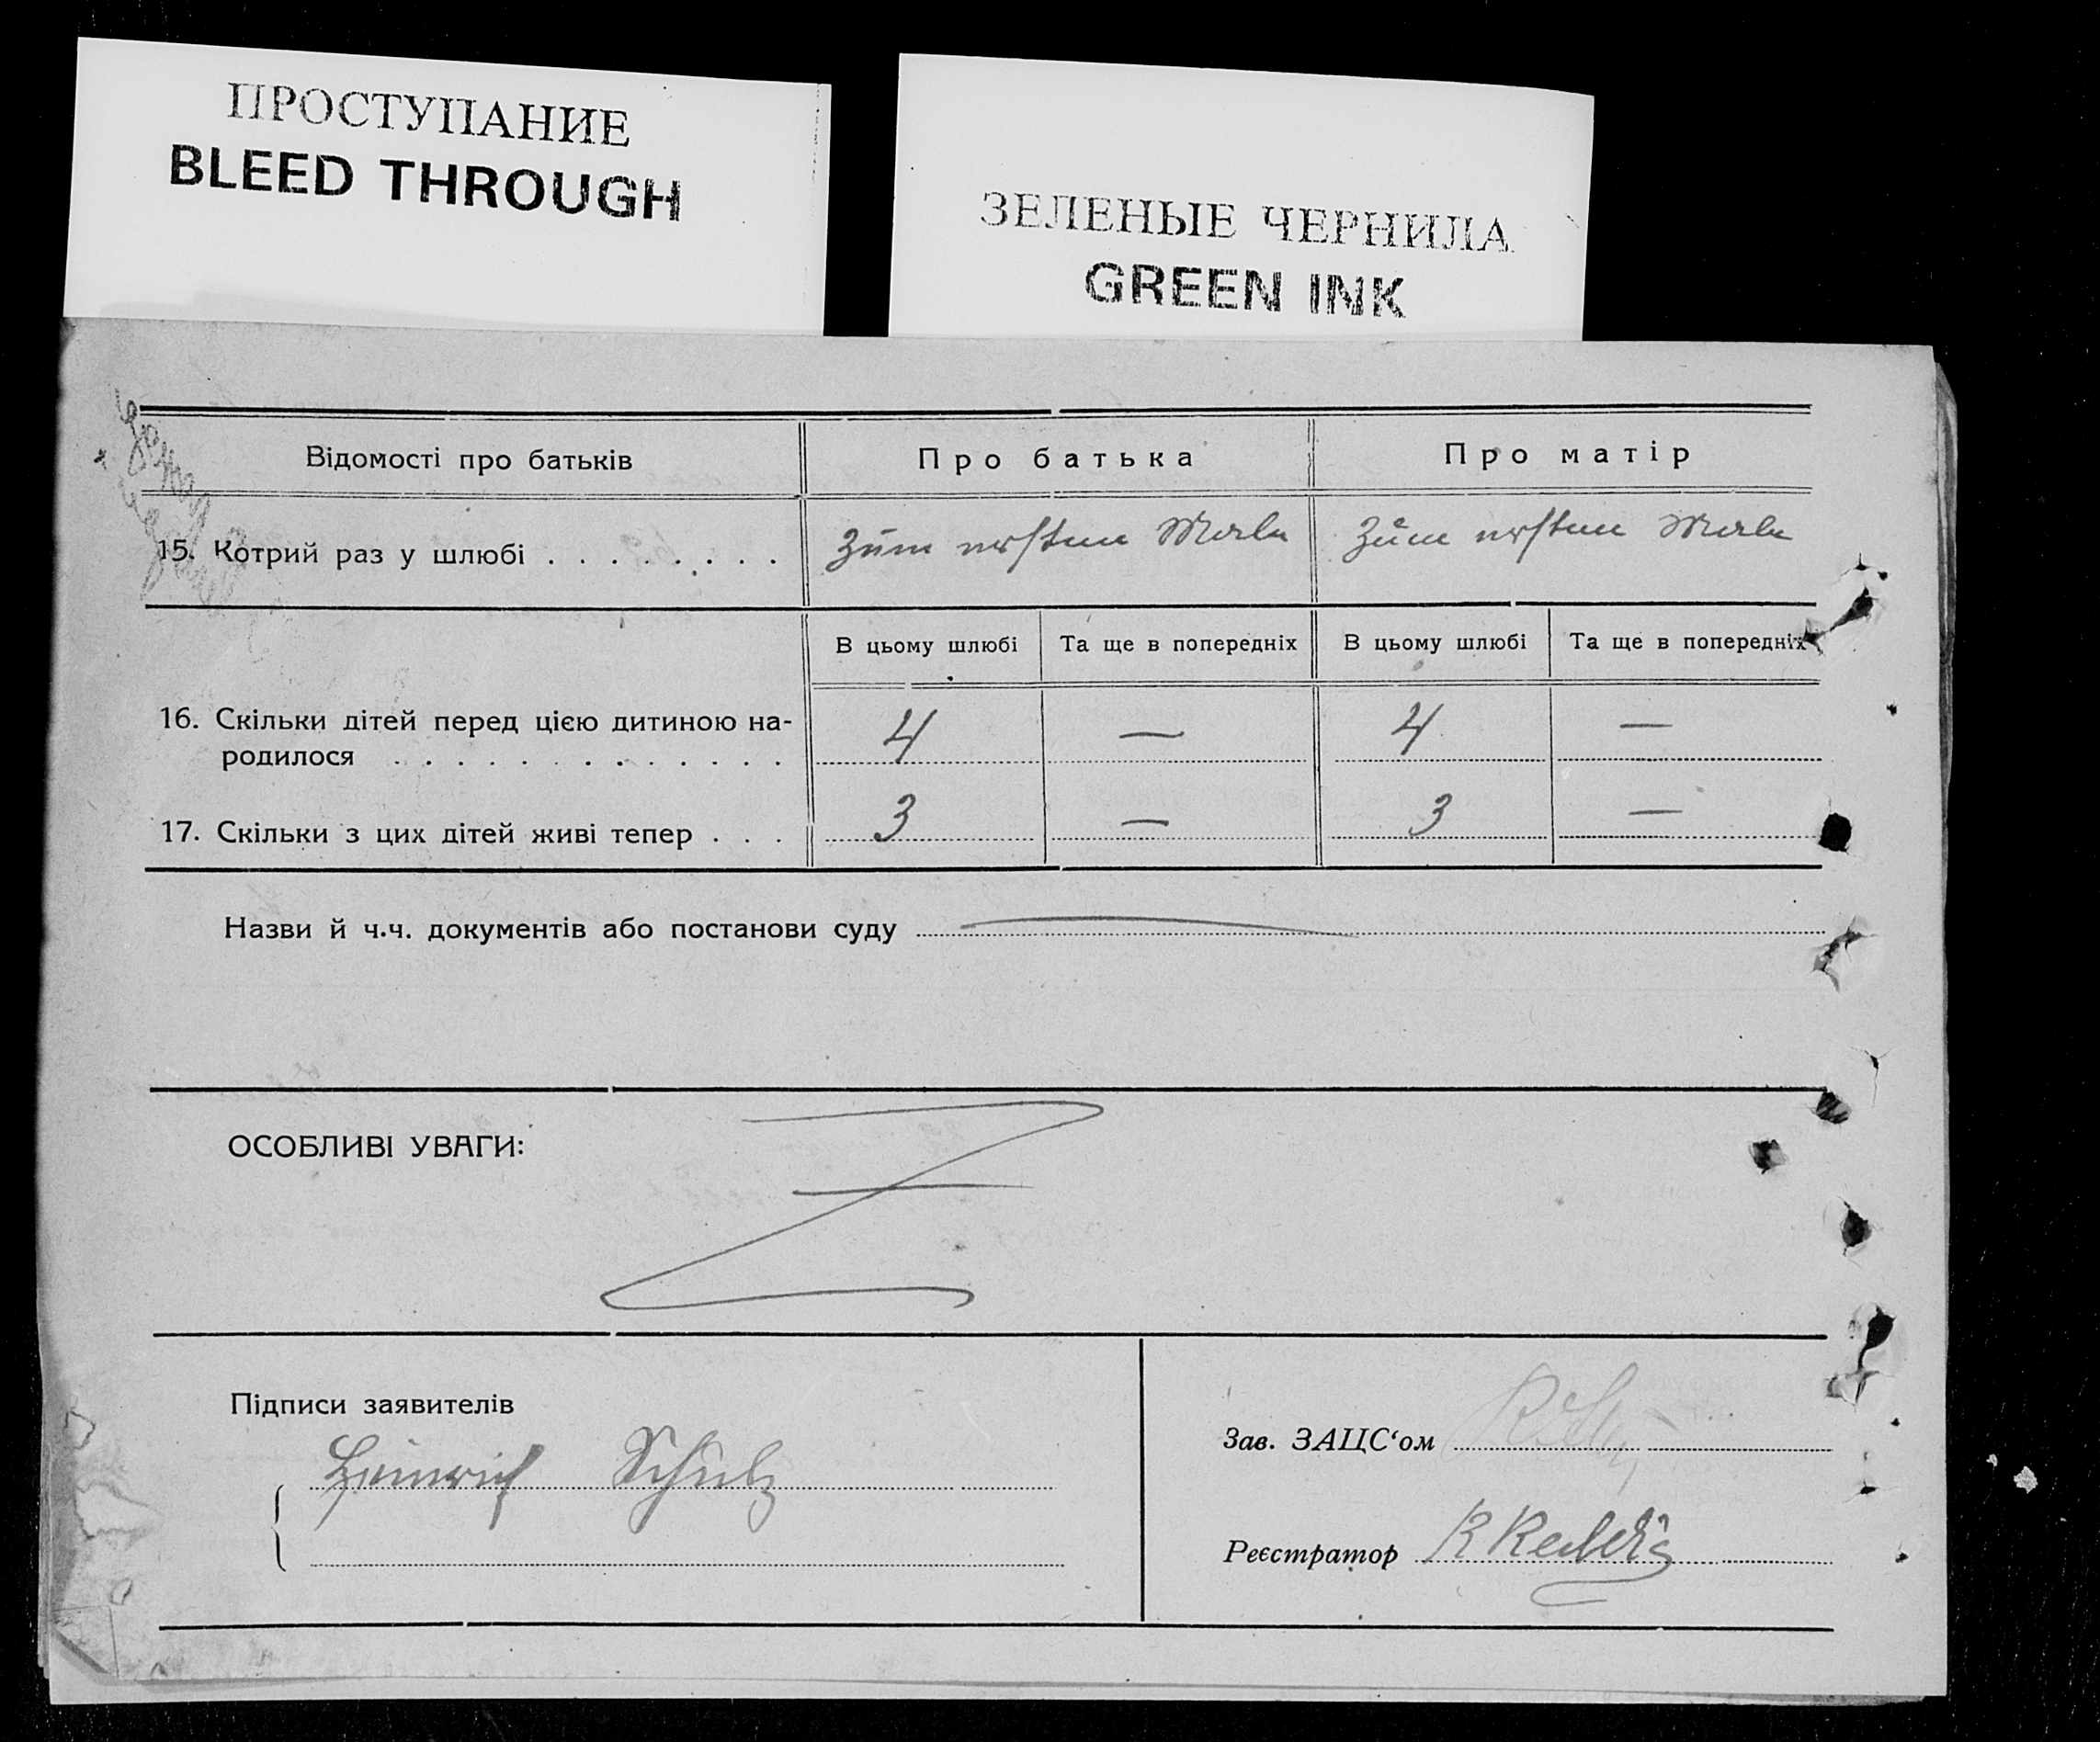 ПРОСТУПАНИЕ
BLEED THROUGH
ЗЕЛЕНЫЕ ЧЕРНИЛА
GREEN INK
Відомості про батьків Про батька Про матір
15. Котрий раз у шлюбі . . . . . . . . Zum ersten Male Zum ersten Male
В цьому шлюбі Та ще в попередніх В цьому шлюбі Та ще в попередніх
16. Скільки дітей перед цією дитиною на-
родилося . . . . . . . . . . . . . 4 — 4 —
17. Скільки з цих дітей живі тепер . . . 3 — 3 —
Назви й ч.ч. документів або постанови суду —
ОСОБЛИВІ УВАГИ:
Підписи заявителів
Heinrich Schulz
Зав. ЗАЦС‘ом
Реєстратор